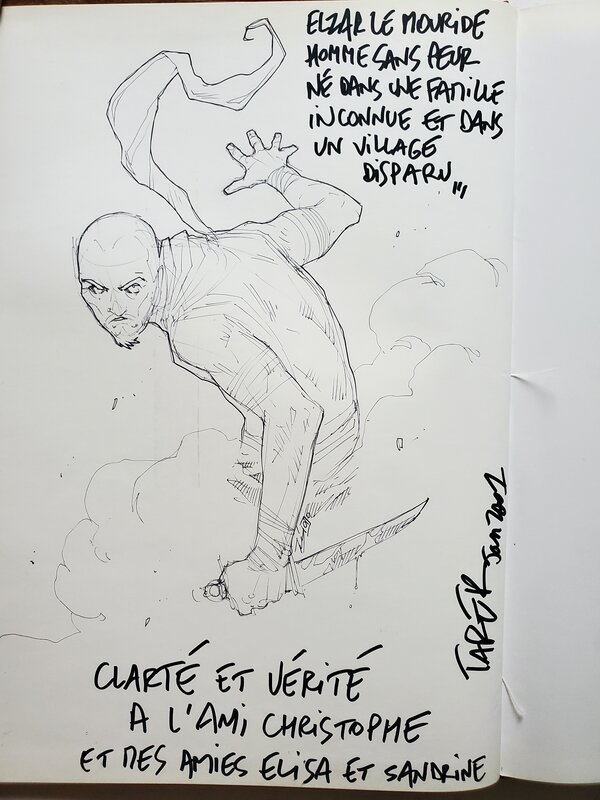 ELZAR LE MOURIDE
HOMME SANS PEUR
NÉ DANS UNE FAMILLE
INCONNUE ET DANS
UN VILLAGE
DISPARU,,,
TAREK Jan 2001
CLARTÉ ET VÉRITÉ
A L'AMI CHRISTOPHE
ET MES AMIES ELISA ET SANDRINE